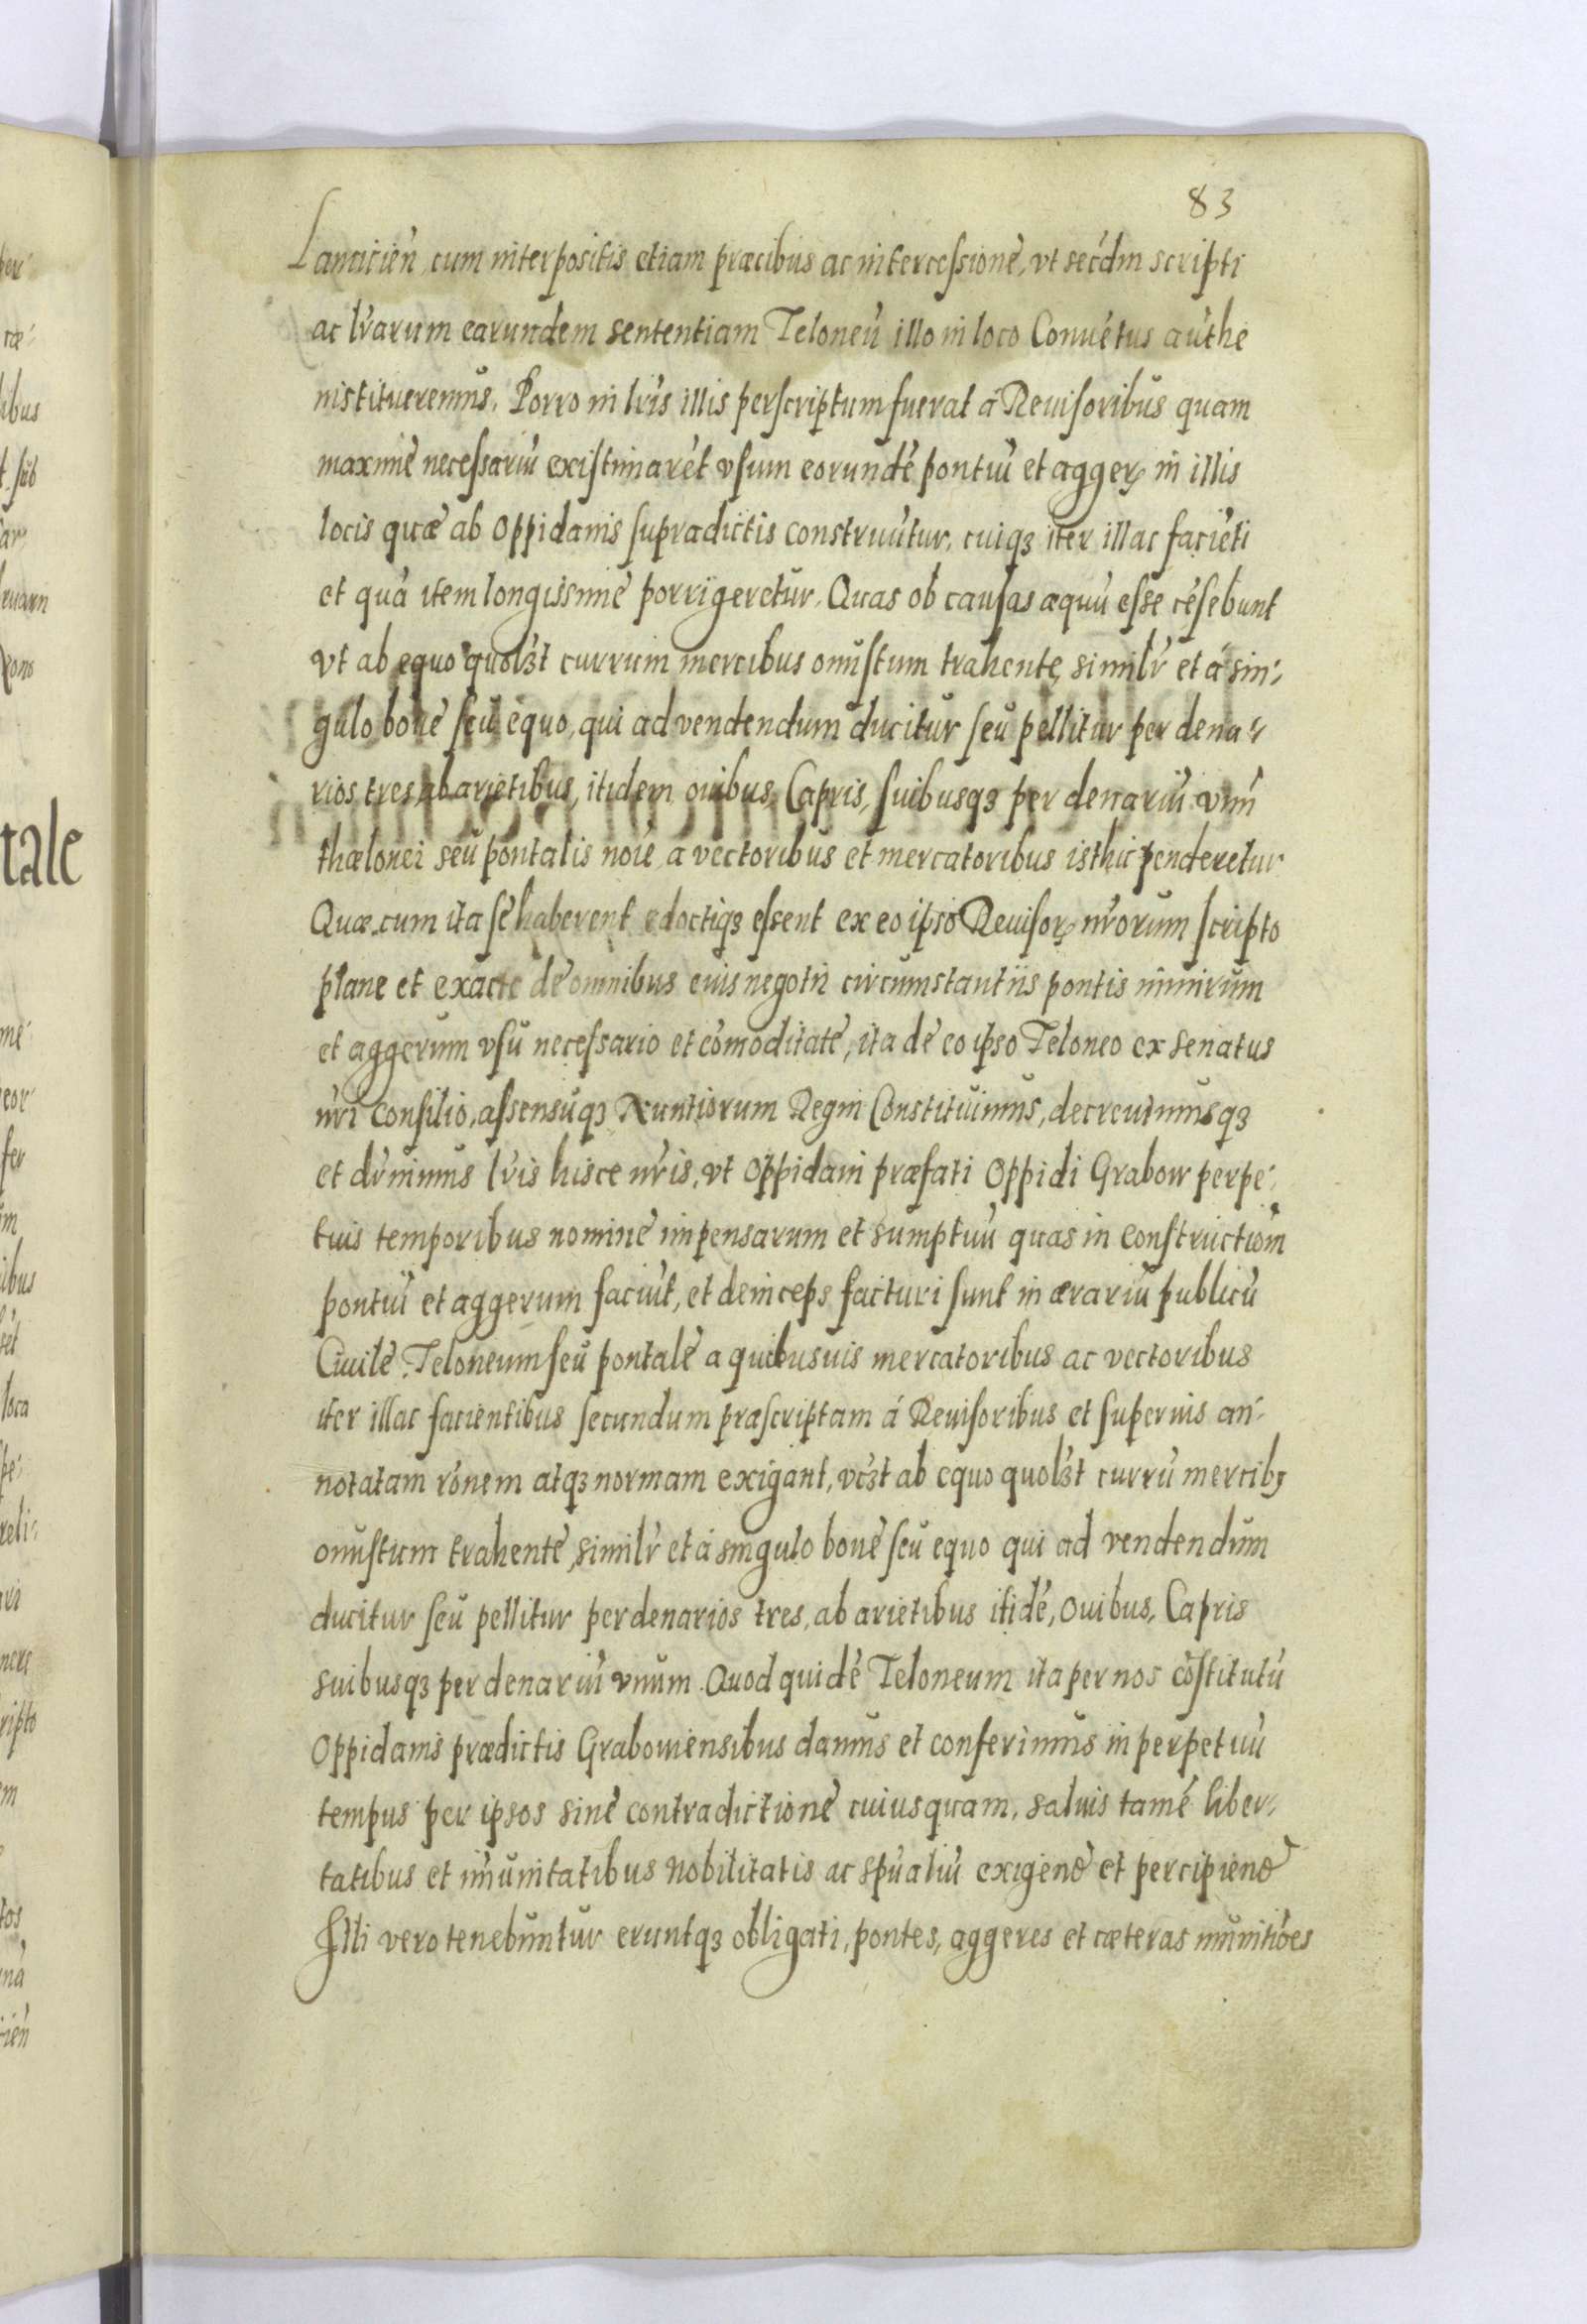 83
Lanciciеń, cum interpositis etiam præcibus ac intercessione, vt secdm scripti
ac lrarum earundem sententiam Teloneū illo in loco Conuētus authē
institueremus. Porro in lris illis perscriptum fuerat a Reuisoribus quam
maximè necessariū existimarēt vsum eorundē pontiū et agger, in illis
locis quæ ab Oppidanis supradictis construūtur, cuiq3 iter illac faciēti
et qua item longissime porrigeretur. Quas ob causas æquū esse cēsebunt
vt ab equo quol3t currum mercibus onustum trahente, similr et a sin-
gulo boue seu equo, qui ad vendendum ducitur seu pellitur per dena-
rios tres, ab arietibus, itidem ouibus, Capris, suibusq3 per denariū vnū
thælonei seu pontalis noie a vectoribus et mercatoribus isthic penderetur
Quæ cum ita se haberent edoctiq3 essent ex eo ipso Reuisor, nrorum scripto
plane et exacte de omnibus euis negotii circumstantiis pontis nimirum
et aggerum vsu necessario et cōmoditate, ita de eo ipso Teloneo ex senatus
nri consilio, assensuq3 Nuntiorum Regni Constituimus, decreuimusq3
et drnimus lris hisce nris, vt Oppidani præfati Oppidi Grabow perpe-
tuis temporibus nomine impensarum et sumptuū quas in constructiom
pontiū et aggerum faciūt, et deinceps facturi sunt in ærariū publicū
Ciuile Teloneum seu pontale a quibusuis mercatoribus ac vectoribus
iter illac facientibus secundum præscriptam á Reuisoribus et superius an-
notatam ronem atq3 normam exigant, vc3t ab equo quol3t currū mercib3
onustum trahente, similr et á singulo boue seu equo qui ad vendendum
ducitur seu pellitur per denarios tres, ab arietibus itidē, ouibus, Capris
suibusq3 per denariū vnum. Quod quidē Teloneum ita per nos cōstitutū
Oppidanis prædictis Grabouiensibus damus et conferimus in perpetuū
tempus per ipsos sine contradictione cuiusquam, saluis tamē liber-
tatibus et imunitatibus Nobilitatis ac spualiū exigend et percipiend
Illi vero tenebuntur eruntq3 obligati, pontes, aggeres et cæteras munitiōes
tale